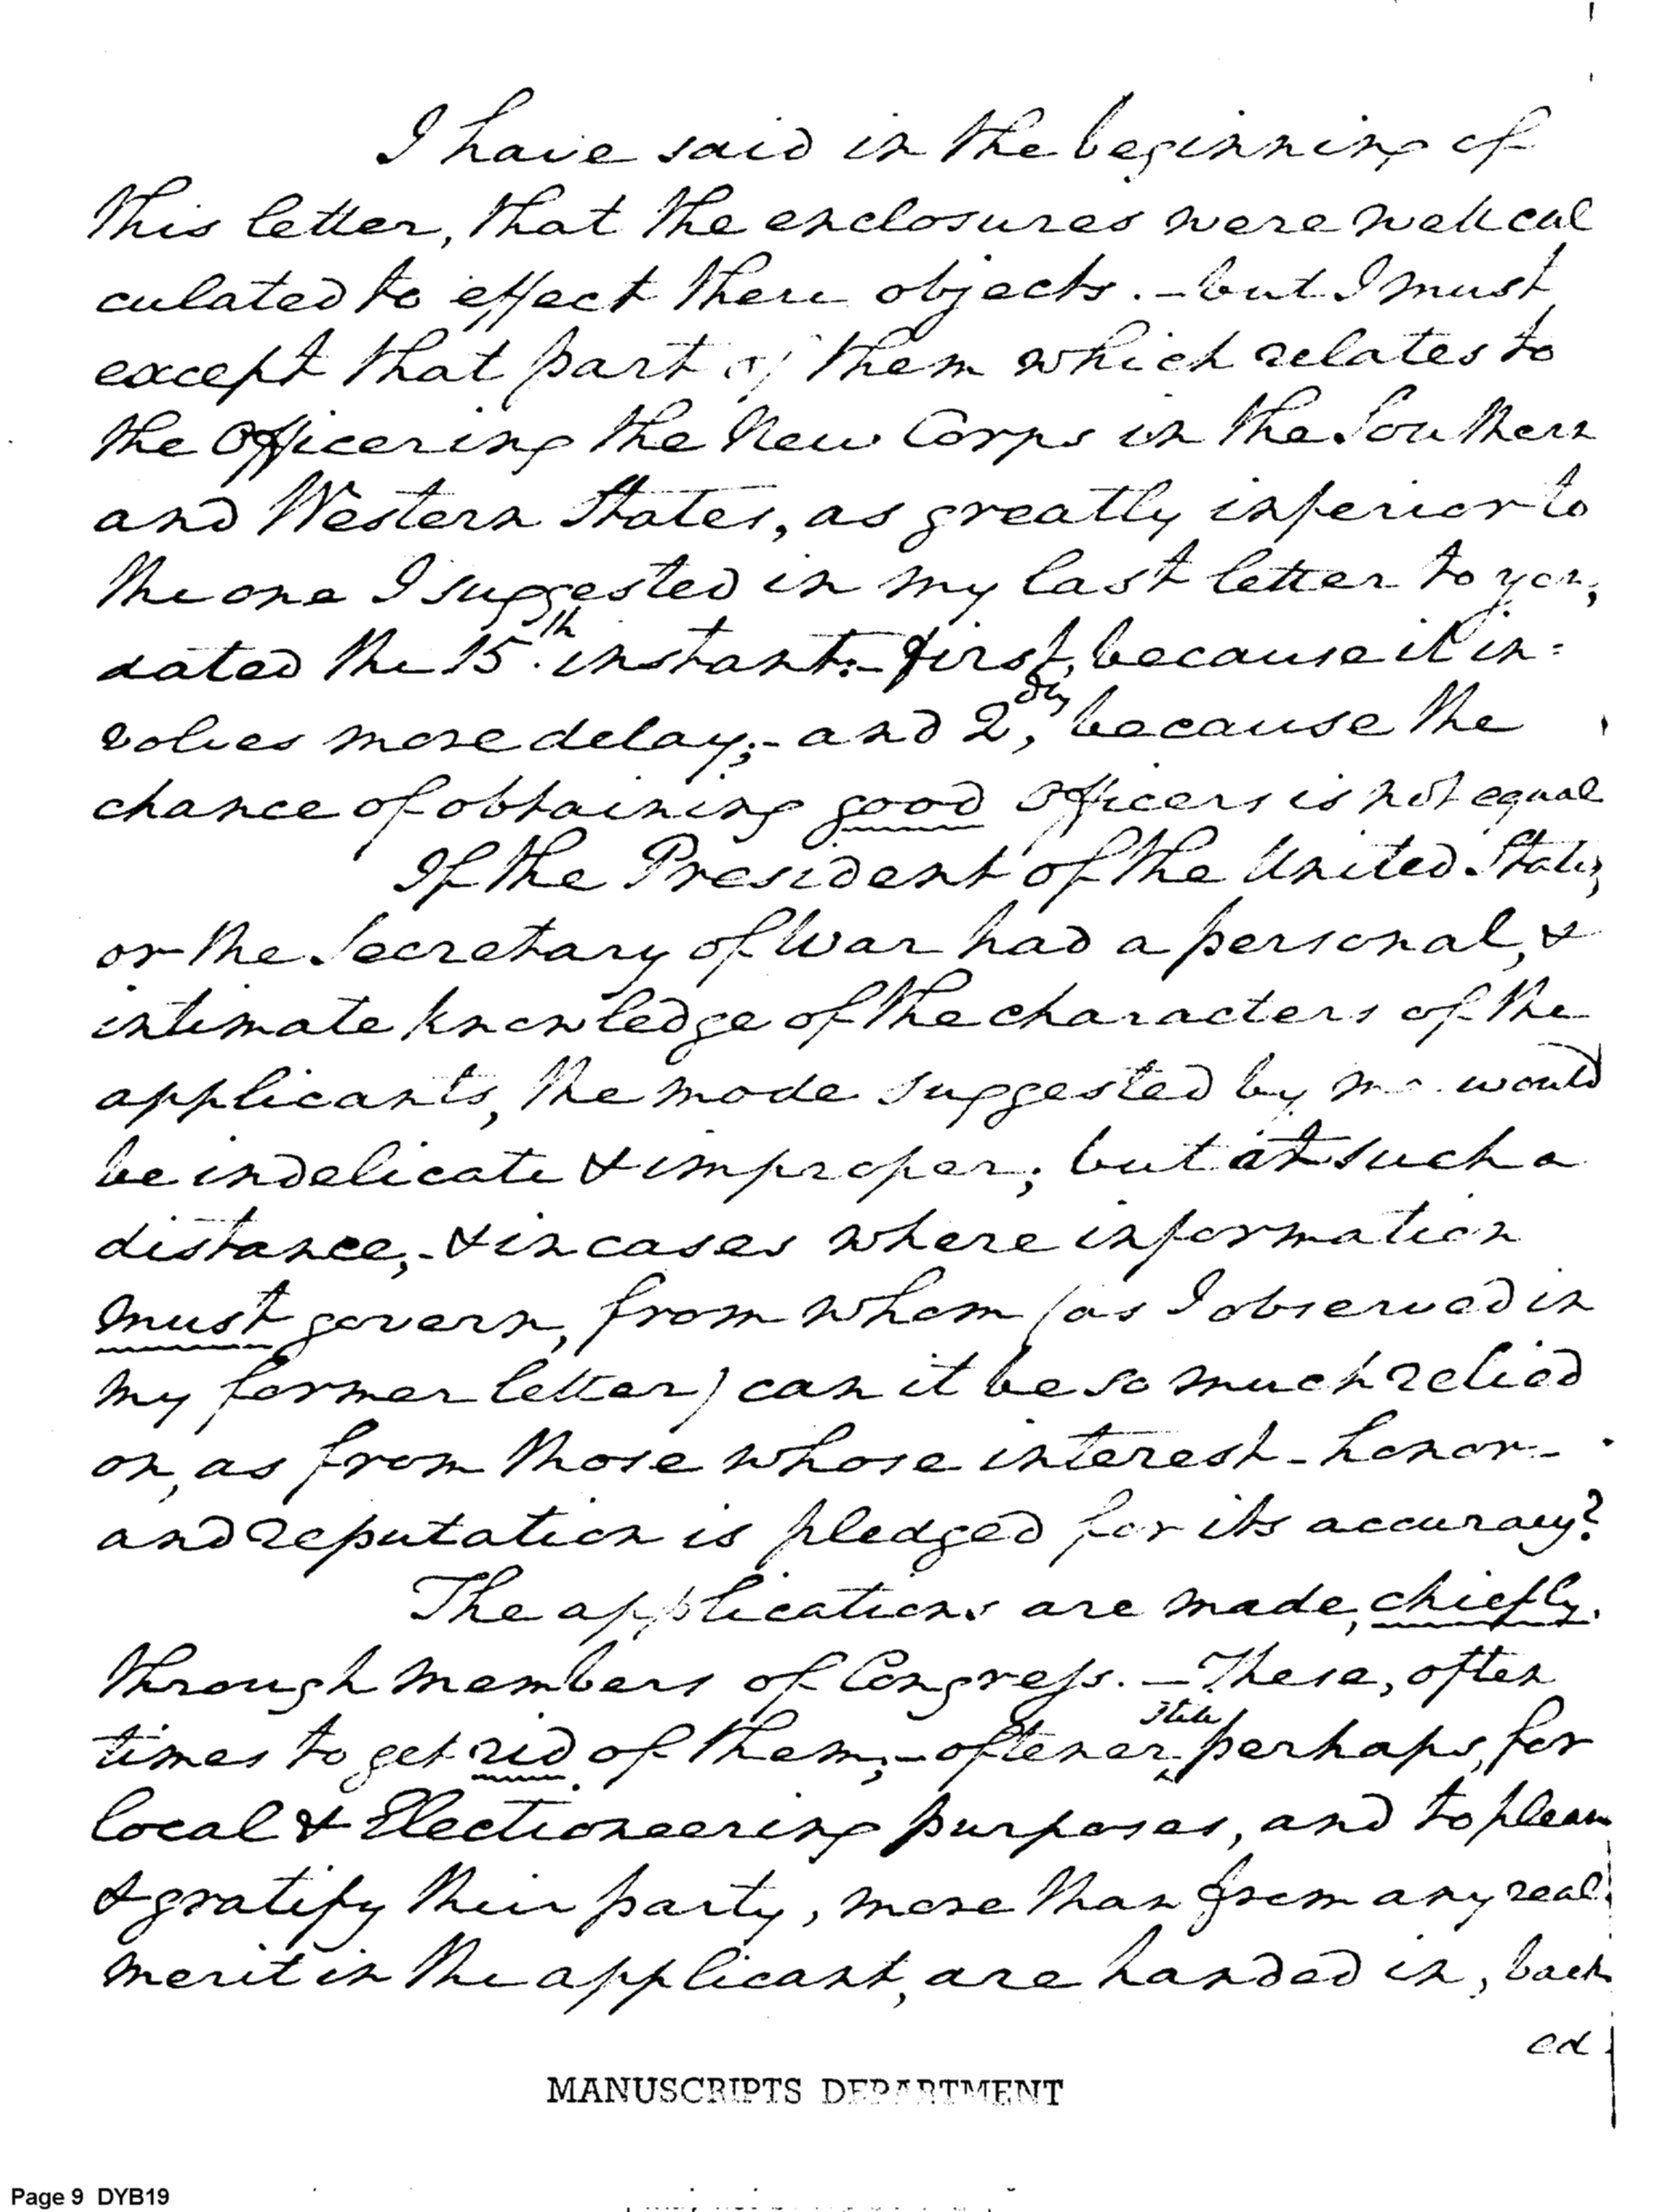 I have said in the beginning of
this letter, that the enclosures were well cal
culated to effect their objects. – but I must
except that part of them which relates to
the Officering the New Corps in the Southern
and Western States, as greatly inferior to
the one I suggested in my last letter to you,
dated the 15th. instant: – first, because it in=
volves more delay; – and 2dly, because the
chance of obtaining good Officers is not equal
If the President of the United States,
or the Secretary of War had a personal, &
intimate knowledge of the characters of the
applicants, the mode suggested by me would
be indelicate & improper; but at such a
distance, – & in cases where information
must govern, from whom (as I observed in
my former letter) can it be so much relied
on, as from those whose interest – honor –
and reputation is pledged for its accuracy?
The applications are made, chiefly
through members of Congress. – These, often
times to get rid of them; – oftener still perhaps, for
local & Electioneering purposes, and to please
& gratify their party, more than from any real
merit in the applicant, are handed in, back
ed
MANUSCRIPTS DEPARTMENT
Page 9 DYB19